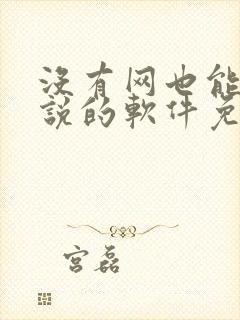 没有网也能
説的軟件免
宫磊